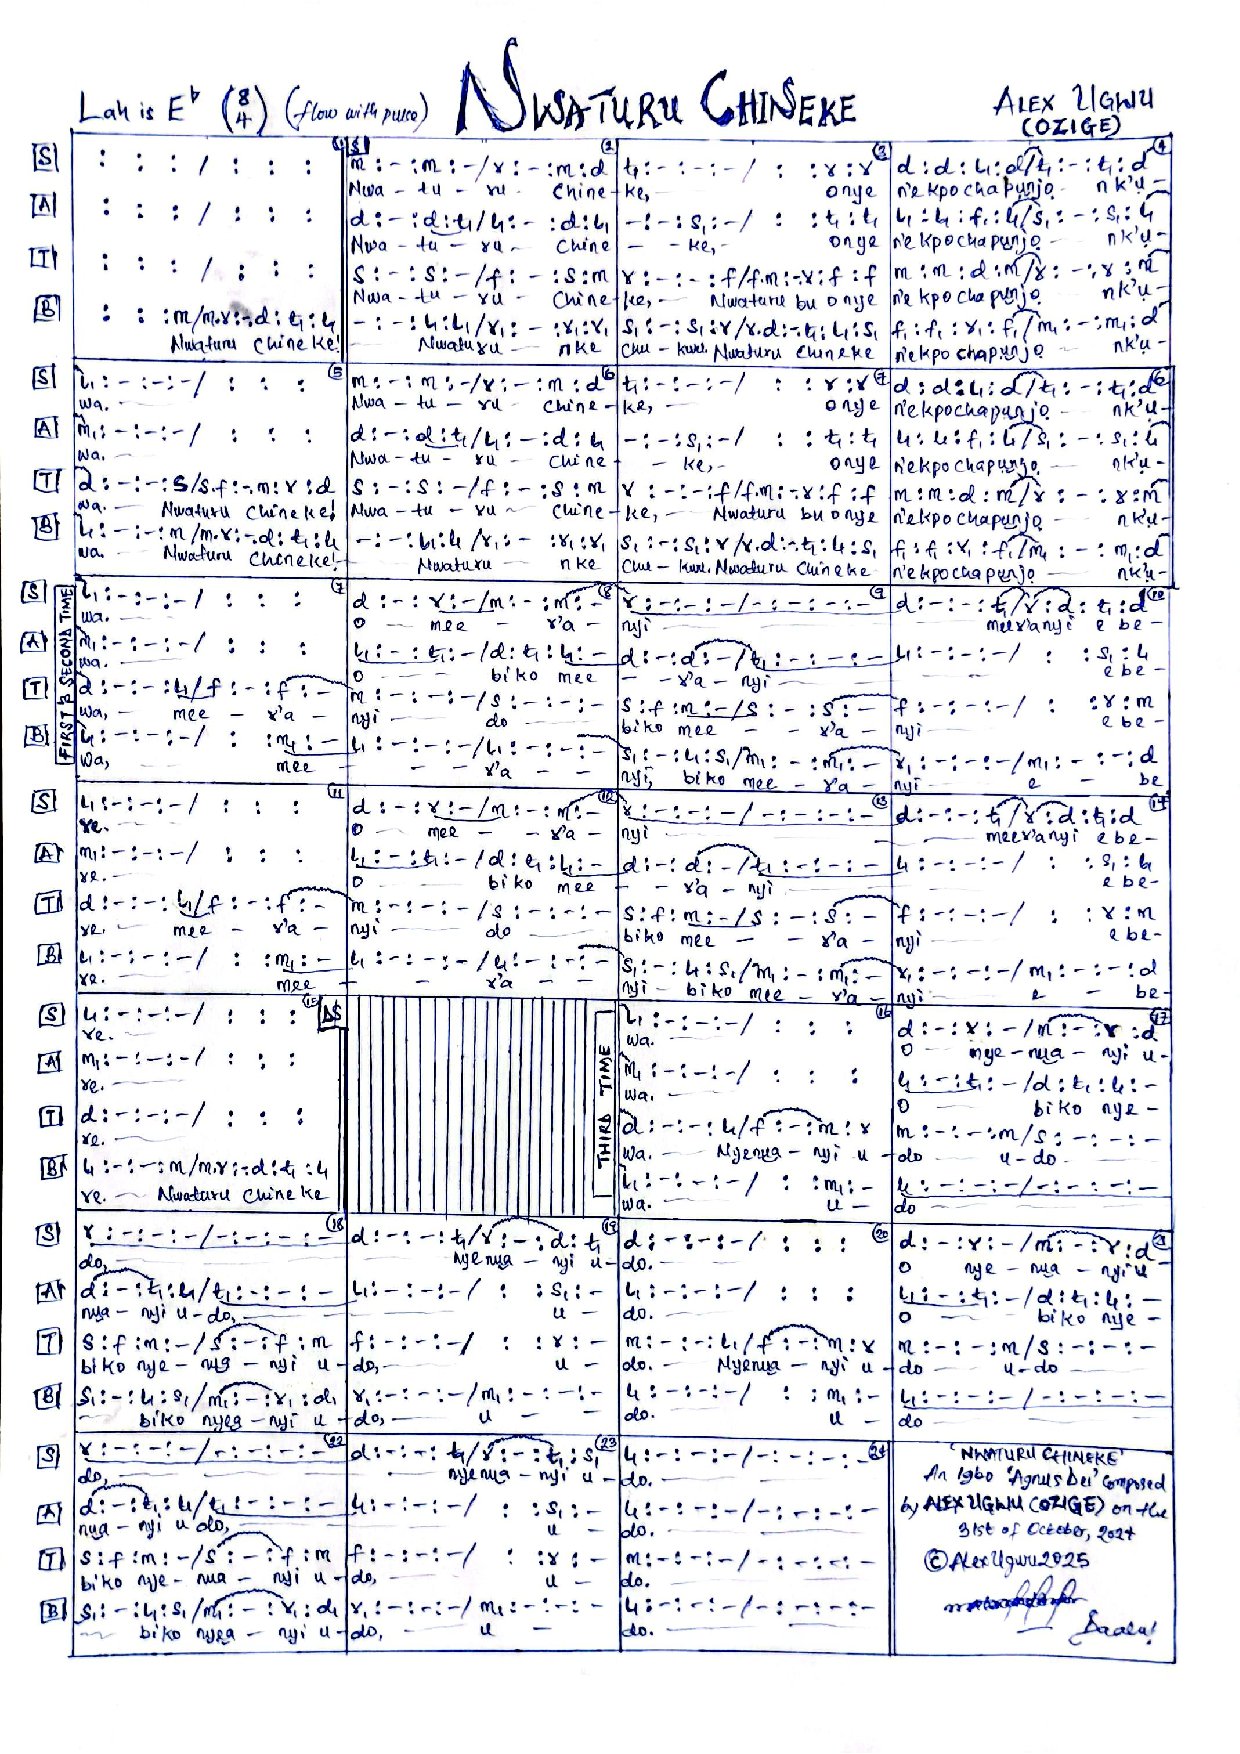 Lah is E♭ (8/4) (flow with pulse) NWATURU CHINEKE ALEX UGWU
(OZIGE)
[S] : : : / : : : 1 S m : - : m : - / r : - : m : d 2 t₁ : - : - : - / : : r : r 3 d : d : l₁ : d / t₁ : - : t₁ : d 4
Nwa - tu - ru - Chine - ke, onye n'ekpochapụnjọ nk'ụ -
[A] : : : / : : : d : - : d : t₁ / l₁ : - : d : l₁ - : - : s₁ : - / : : t₁ : t₁ l₁ : l₁ : f₁ : l₁ / s₁ : - : s₁ : l₁
Nwa - tu - ru - Chine - ke, onye n'ekpochapụnjọ nk'ụ -
[T] : : : / : : : s : - : s : - / f : - : s : m r : - : - : f / f.m : - .r : f : f m : m : d : m / r : - : r : m
Nwa - tu - ru - Chine - ke, Nwaturu bu onye n'ekpochapụnjọ nk'ụ -
[B] : : : m / m.r : - .d : t₁ : l₁ - : - : l₁ : l₁ / r₁ : - : r₁ : r₁ s₁ : - : s₁ : r / r.d : - .t₁ : l₁ : s₁ f₁ : f₁ : r₁ : f₁ / m₁ : - : m₁ : d
Nwaturu Chineke! Nwaturu nke Chu - kwu. Nwaturu Chineke n'ekpochapụnjọ nk'ụ -
[S] l₁ : - : - : - / : : : 5 m : - : m : - / r : - : m : d 6 t₁ : - : - : - / : : r : r 7 d : d : l₁ : d / t₁ : - : t₁ : d
wa. Nwa - tu - ru Chine - ke, onye n'ekpochapụnjọ nk'ụ -
[A] m₁ : - : - : - / : : : d : - : d : t₁ / l₁ : - : d : l₁ - : - : s₁ : - / : : t₁ : t₁ l₁ : l₁ : f₁ : l₁ / s₁ : - : s₁ : l₁
wa. Nwa - tu - ru Chine - ke, - onye n'ekpochapụnjọ nk'ụ -
[T] d : - : - : s / s.f : - .m : r : d s : - : s : - / f : - : s : m r : - : - : f / f.m : - .r : f : f m : m : d : m / r : - : r : m
wa. Nwaturu Chineke! Nwa - tu - ru Chine - ke, Nwaturu bu onye n'ekpochapụnjọ nk'ụ -
[B] l₁ : - : - : m / m.r : - .d : t₁ : l₁ - : - : l₁ : l₁ / r₁ : - : r₁ : r₁ s₁ : - : s₁ : r / r.d : - .t₁ : l₁ : s₁ f₁ : f₁ : r₁ : f₁ / m₁ : - : m₁ : d
wa. Nwaturu Chineke! Nwaturu nke Chu - kwu. Nwaturu Chineke n'ekpochapụnjọ nk'ụ -
FIRST & SECOND TIME
[S] l₁ : - : - : - / : : : 7 d : - : r : - / m : - : m : - 8 r : - : - : - / - : - : - : - 9 d : - : - : t₁ / r : d : t₁ : d 10
wa. O mee - r'a - nyi meer'anyi e be -
[A] m₁ : - : - : - / : : : l₁ : - : t₁ : - / d : t₁ : l₁ : - d : - : d : - / t₁ : - : - : - l₁ : - : - : - / : : s₁ : l₁
wa. O biko mee - - r'a - nyi e be -
[T] d : - : - : l₁ / f : - : f : - m : - : - : - / s : - : - : - s : f : m : - / s : - : s : - f : - : - : - / : : r : m
wa, - mee - r'a - nyi do biko mee - - r'a - nyi e be -
[B] l₁ : - : - : - / : : m₁ : - l₁ : - : - : - / l₁ : - : - : - s₁ : - : l₁ : s₁ / m₁ : - : m₁ : - r₁ : - : - : - / m₁ : - : - : d
wa, mee - - r'a - - nyi, biko mee - r'a - nyi e - be
[S] l₁ : - : - : - / : : : 11 d : - : r : - / m : - : m : - 12 r : - : - : - / - : - : - : - 13 d : - : - : t₁ / r : d : t₁ : d 14
re. O mee - - r'a - nyi meer'anyi e be -
[A] m₁ : - : - : - / : : : l₁ : - : t₁ : - / d : t₁ : l₁ : - d : - : d : - / t₁ : - : - : - l₁ : - : - : - / : : s₁ : l₁
re. O biko mee - - r'a - nyi e be -
[T] d : - : - : l₁ / f : - : f : - m : - : - : - / s : - : - : - s : f : m : - / s : - : s : - f : - : - : - / : : r : m
re. - mee - r'a - nyi do biko mee - - r'a - nyi e be -
[B] l₁ : - : - : - / : : m₁ : - l₁ : - : - : - / l₁ : - : - : - s₁ : - : l₁ : s₁ / m₁ : - : m₁ : - r₁ : - : - : - / m₁ : - : - : d
re. mee - - - r'a - - nyi - biko mee - r'a - nyi e - be -
THIRD TIME
[S] l₁ : - : - : - / : : : 15 DS l₁ : - : - : - / : : : 16 d : - : r : - / m : - : r : d 17
re. wa. O nye - nụa - nyi u -
[A] m₁ : - : - : - / : : : m₁ : - : - : - / : : : l₁ : - : t₁ : - / d : t₁ : l₁ : -
re. wa. O biko nye -
[T] d : - : - : - / : : : d : - : - : l₁ / f : - : m : r m : - : - : m / s : - : - : -
re. wa. Nyenụa - nyi u - do u - do
[B] l₁ : - : - : m / m.r : - .d : t₁ : l₁ l₁ : - : - : - / : : m₁ : - l₁ : - : - : - / - : - : - : -
re. Nwaturu Chineke wa. u - do
[S] r : - : - : - / - : - : - : - 18 d : - : - : t₁ / r : - : d : t₁ 19 d : - : - : - / : : : 20 d : - : r : - / m : - : r : d 21
do, nyenụa - nyi u - do. O nye - nụa - nyi u
[A] d : - : t₁ : l₁ / t₁ : - : - : - l₁ : - : - : - / : : s₁ : - l₁ : - : - : - / : : : l₁ : - : t₁ : - / d : t₁ : l₁ : -
nụa - nyi u - do, u - do. O biko nye -
[T] s : f : m : - / s : - : f : m f : - : - : - / : : r : - m : - : - : l₁ / f : - : m : r m : - : - : m / s : - : - : -
biko nye - nụa - nyi u - do, u - do. Nyenụa - nyi u - do u - do
[B] s₁ : - : l₁ : s₁ / m₁ : - : r₁ : d₁ r₁ : - : - : - / m₁ : - : - : - l₁ : - : - : - / : : m₁ : - l₁ : - : - : - / - : - : - : -
biko nyeụa - nyi u - do, u - - do. u - do
[S] r : - : - : - / - : - : - : - 22 d : - : - : t₁ / r : - : t₁ : s₁ 23 l₁ : - : - : - / - : - : - : - 24 'NWATURU CHINEKE'
do, nyenụa - nyi u - do. An Igbo 'Agnus Dei' Composed
[A] d : - : t₁ : l₁ / t₁ : - : - : - l₁ : - : - : - / : : s₁ : - l₁ : - : - : - / - : - : - : - by ALEX UGWU (OZIGE) on the
nụa - nyi u do, u - do. 31st of October, 2024
[T] s : f : m : - / s : - : f : m f : - : - : - / : : r : - m : - : - : - / - : - : - : - © Alex Ugwu 2025
biko nye - nụa - nyi u - do, u - do.
[B] s₁ : - : l₁ : s₁ / m₁ : - : r₁ : d₁ r₁ : - : - : - / m₁ : - : - : - l₁ : - : - : - / - : - : - : -
biko nyeụa - nyi u - do, u - do.